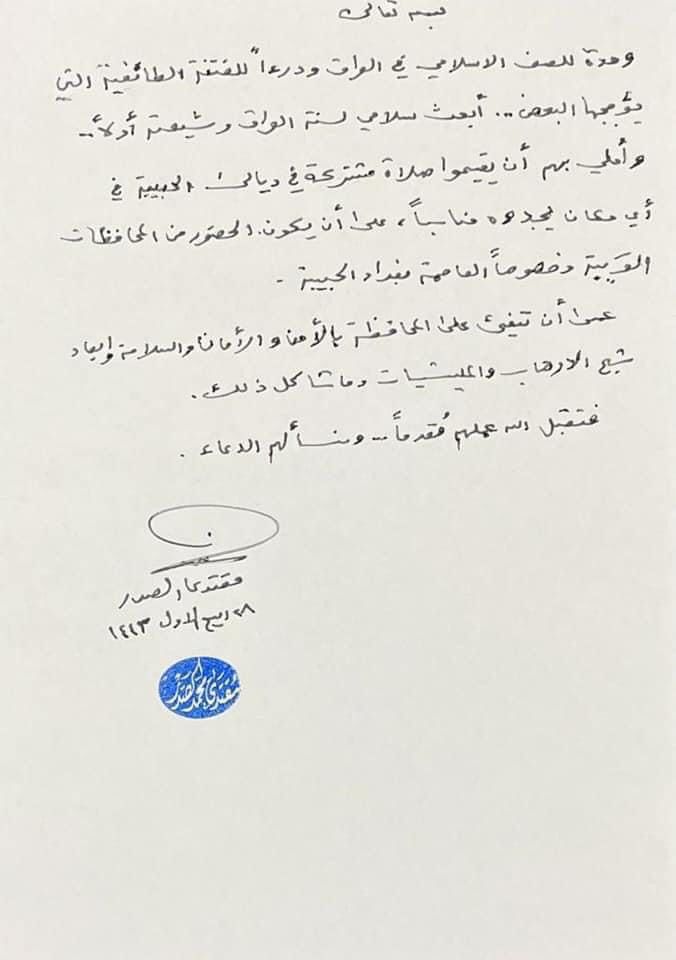 بسمه تعالى
وحدة للصف الاسلامي في العراق ودرءاً للفتنة الطائفية التي
يؤججها البعض .. أبعث سلامي لسنة العراق وشيعته أولاً ..
وأملي بهم أن يقيموا صلاة مشتركة في ديالى الحبيبة في
أي مكان يجدوه مناسباً، على أن يكون الحضور من المحافظات
القريبة وخصوصاً العاصمة بغداد الحبيبة .
عسى أن تفيء على المحافظة بالأمن والأمان والسلامة وإبعاد
شبح الارهاب والمليشيات وما شاكل ذلك .
فتقبل الله عملهم مُقدماً .. ونسألهم الدعاء .
مقتدى الصدر
٢٨ ربيع الاول ١٤٤٣
مقتدى محمد الصدر